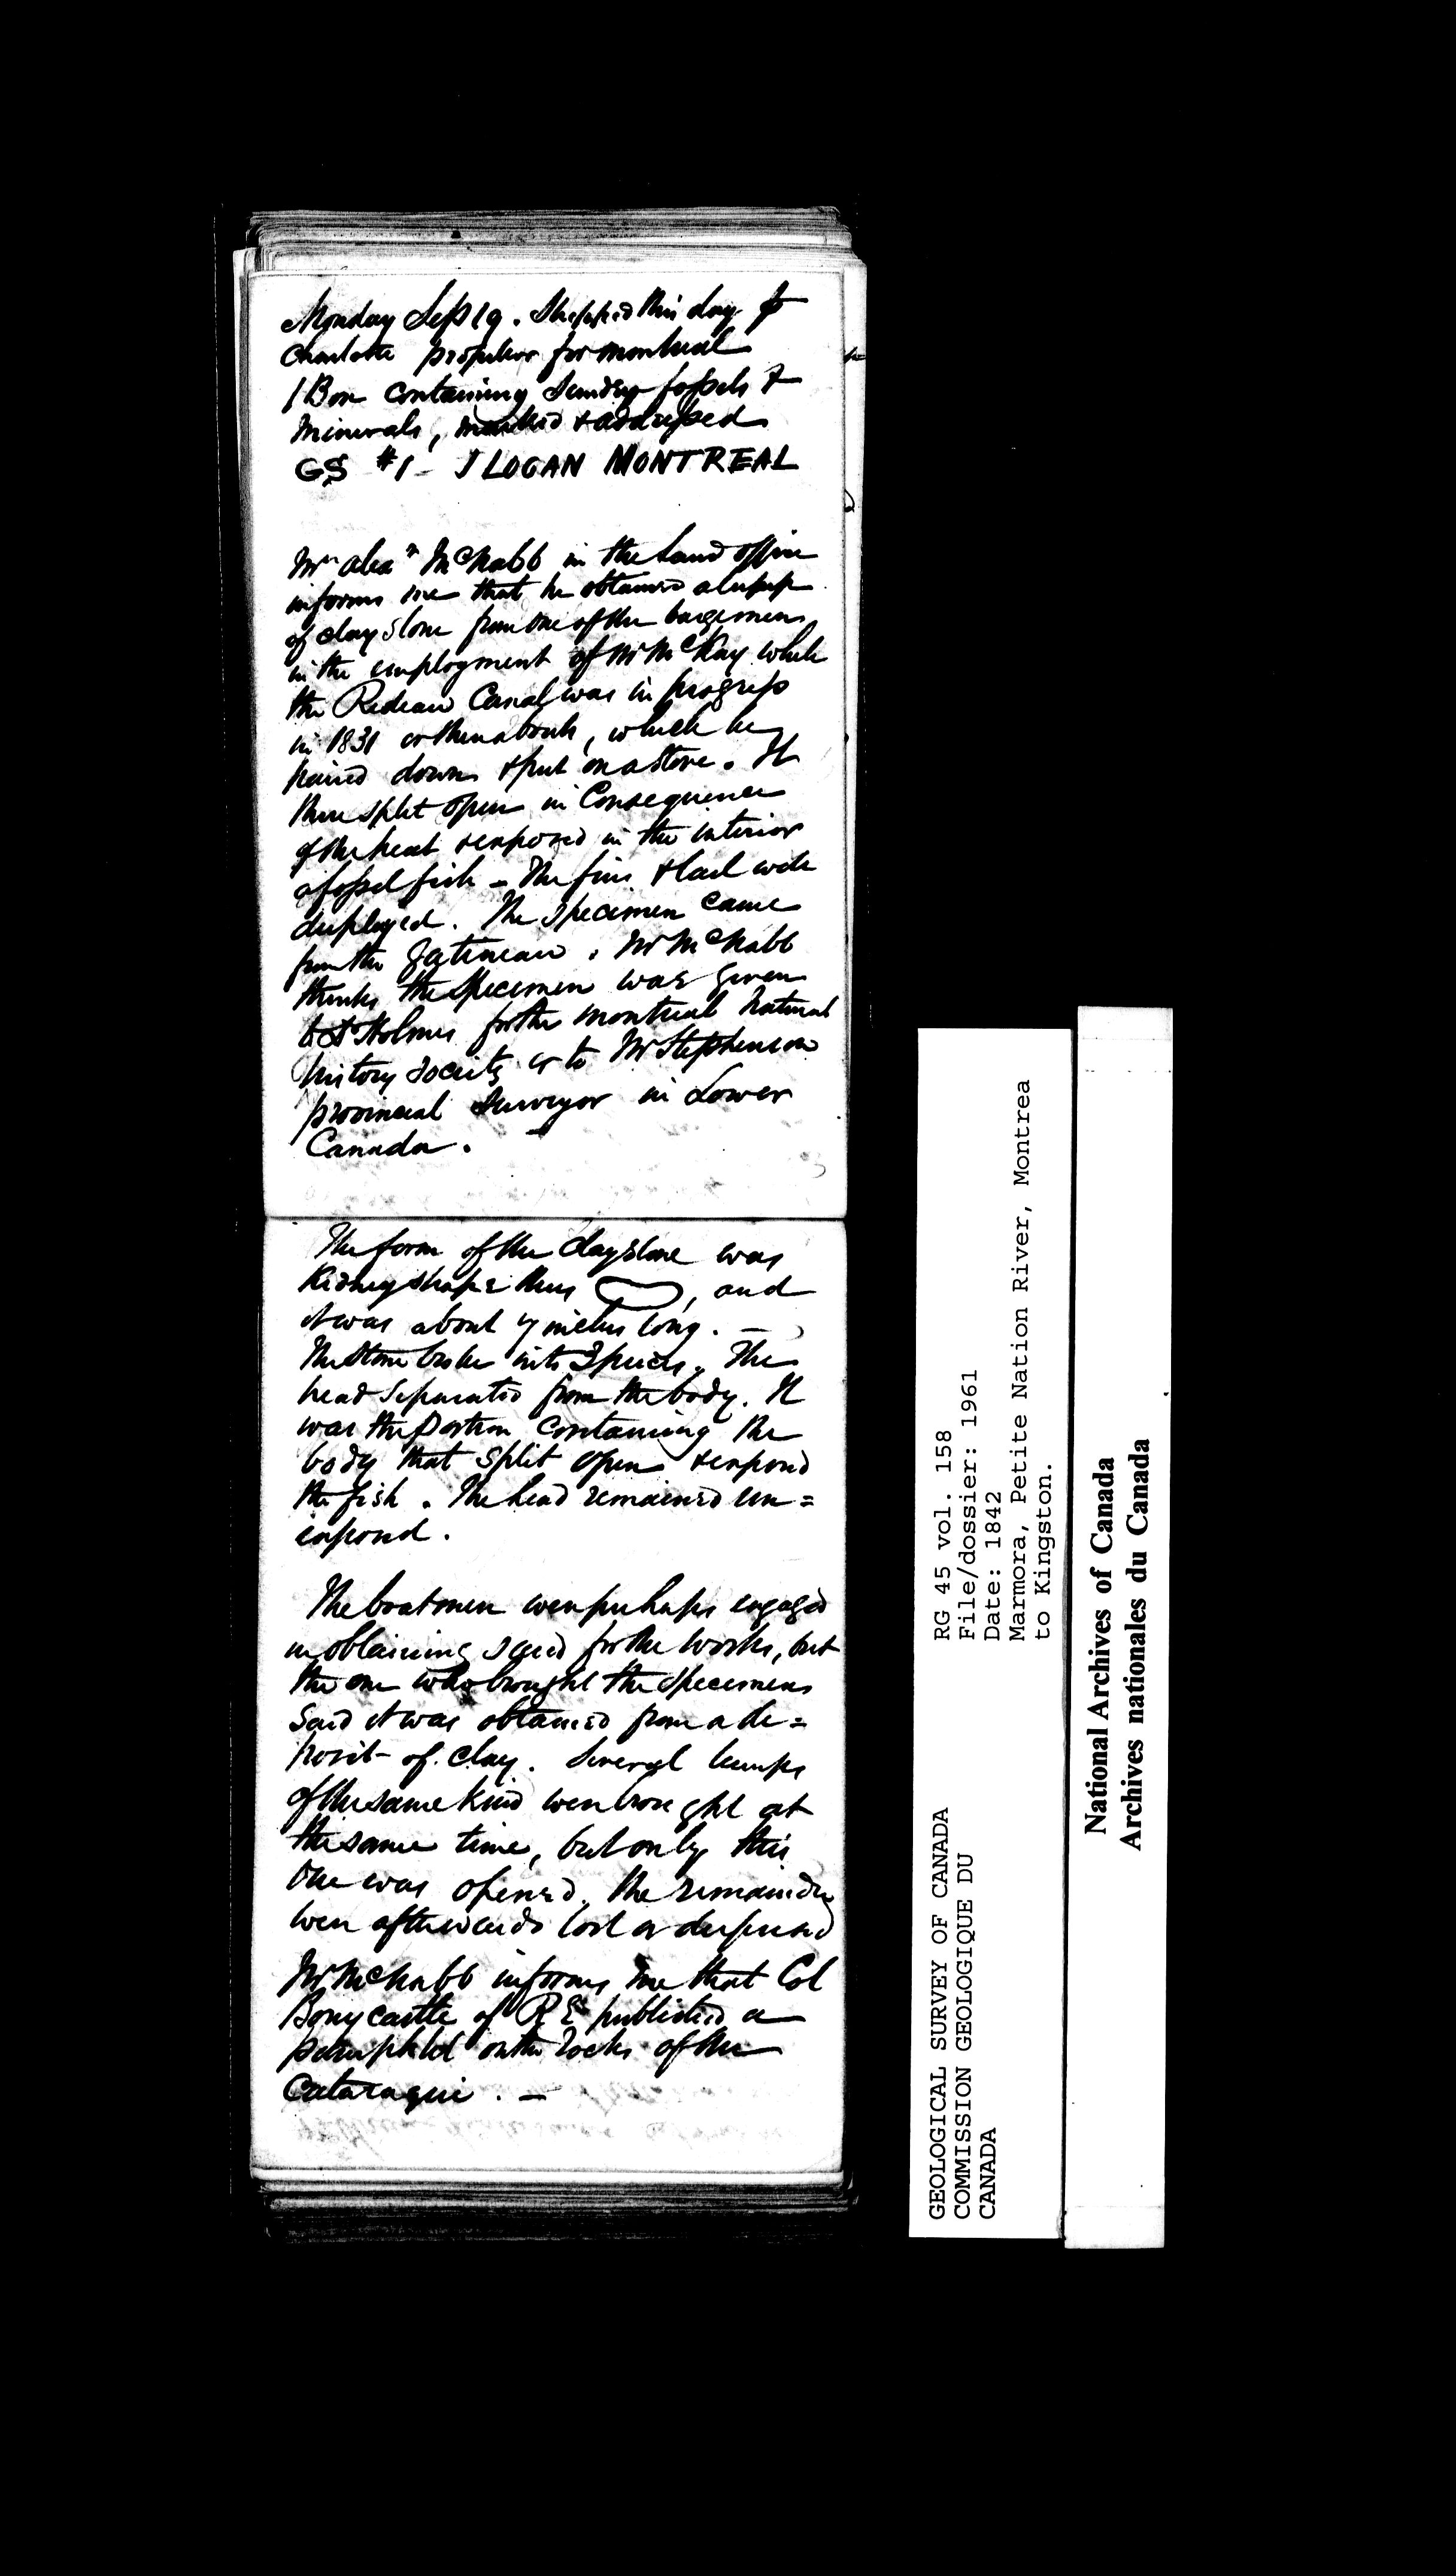 Monday Sep 19. Shipped this day p
Charlotte propeller for Montreal
1 Box containing sundry fossils &
minerals, marked & addressed
GS #1 - J LOGAN MONTREAL
Mr Alexr McNabb in the Land office
informs me that he obtained a lump
of clay stone from one of the bargemen
in the employment of Mr McKay while
the Redeau Canal was in progress
in 1831 or thereabouts, which he
down & put on a stove. It
then split open in consequence
of the heat & exposed in the interior
a fossil fish - The fins & tail well
displayed. The specimen came
from the Gatineau. Mr McNabb
thinks the specimen was given
to Dr Holmes for the Montreal Natural
history Society or to Mr Stephenson
provincial surveyor in Lower
Canada.
The form of the clay stone was
Kidney shape thus , and
it was about 7 inches long. —
The stone broke into 2 pieces. The
head separated from the body. It
was the portion containing the
body that split open & exposed
the fish. The head remained un=
exposed.
The boatmen were perhaps engaged
in obtaining sand for the works, but
the one who brought the specimens
said it was obtained from a de=
posit of clay. Several lumps
of the same kind were brought at
the same time, but only this
one was opened. The remainder
were afterwards lost or dispersed
Mr McNabb informs me that Col
Bonycastle of R E published a
pamphlet on the rocks of the
Cataraqui. —
RG 45 vol. 158
File/dossier: 1961
Date: 1842
Marmora, Petite Nation River, Montrea
to Kingston.
GEOLOGICAL SURVEY OF CANADA
COMMISSION GEOLOGIQUE DU
CANADA
National Archives of Canada
Archives nationales du Canada